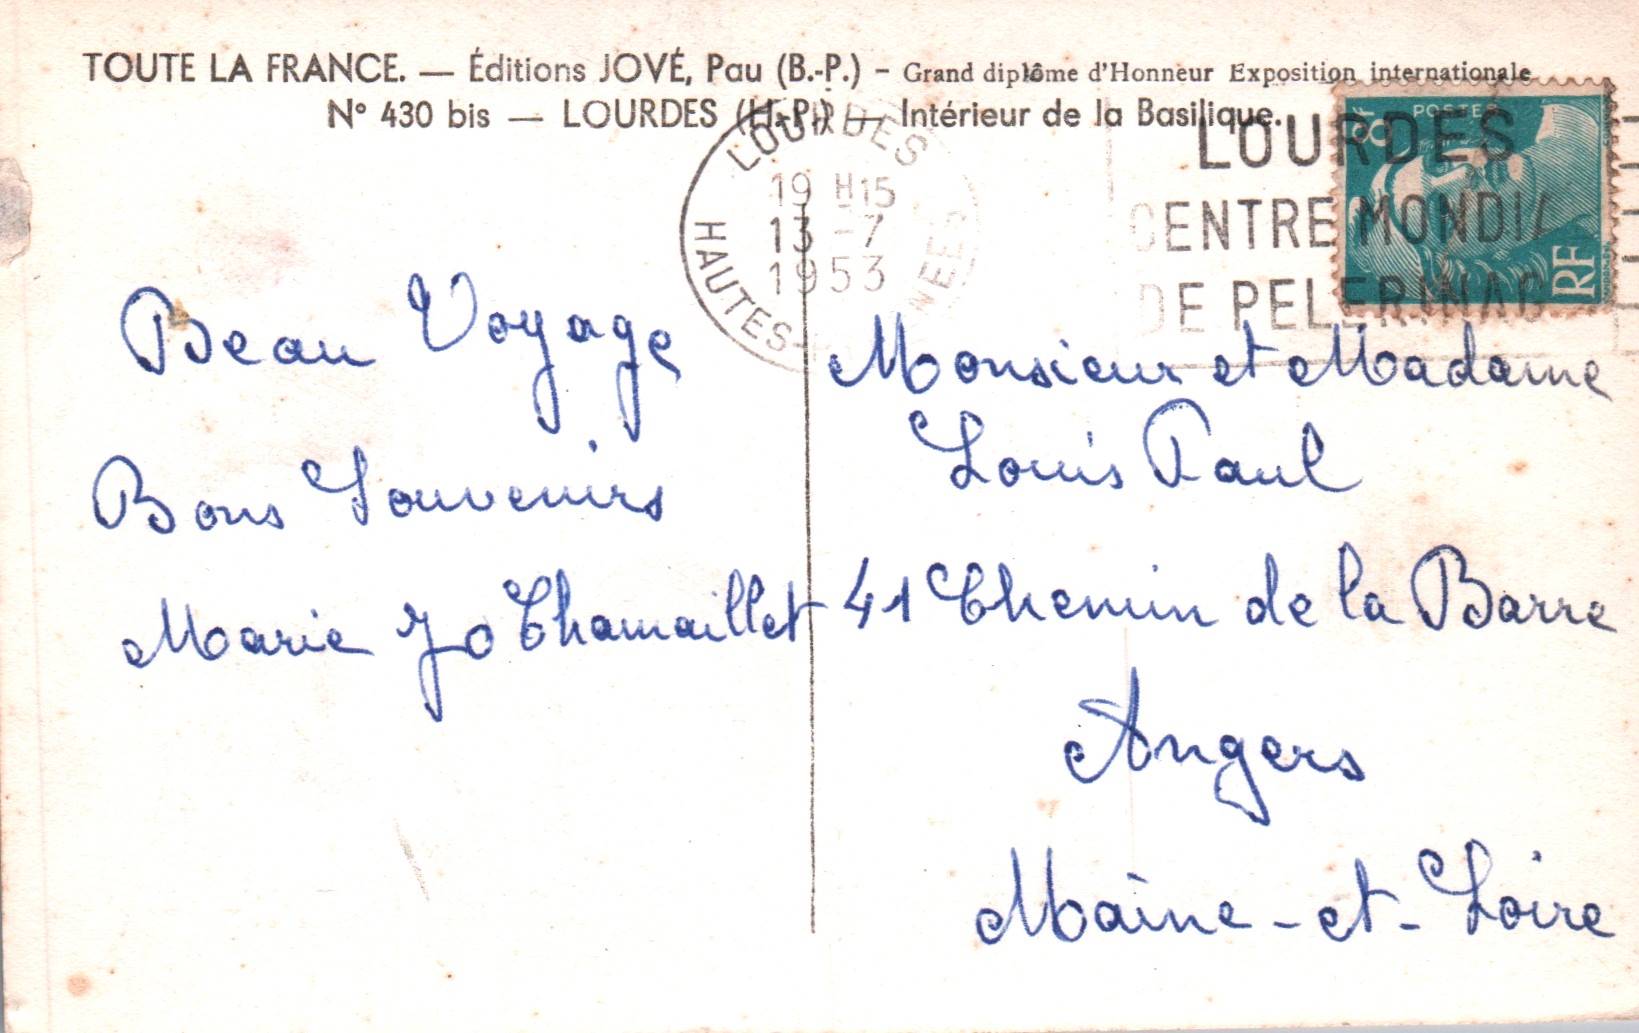 TOUTE LA FRANCE. — Éditions JOVÉ, Pau (B.-P.) – Grand diplôme d'Honneur Exposition internationale
N° 430 bis — LOURDES (H.-P.) — Intérieur de la Basilique.
LOURDES
19 H15
13 -7
1953
HAUTES-
LOURDES
CENTRE MONDIA
DE PELERINAG
POSTES
8F
RF
Beau Voyage
Bons Souvenirs
Marie Jo Chamaillet
Monsieur et Madame
Louis Paul
41 Chemin de la Barre
Angers
Maine-et-Loire